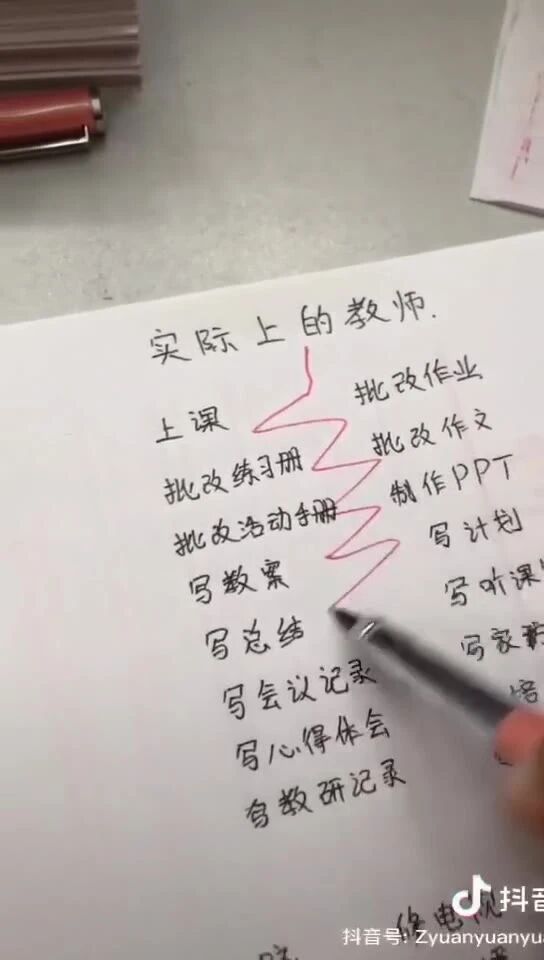 实际上的教师.
上课
批改作业
批改练习册
批改作文
批改活动手册
制作PPT
写教案
写计划
写总结
写听课
写会议记录
写家
写心得体会
培
写教研记录
修电
抖音
抖音号: Zyuanyuanyu